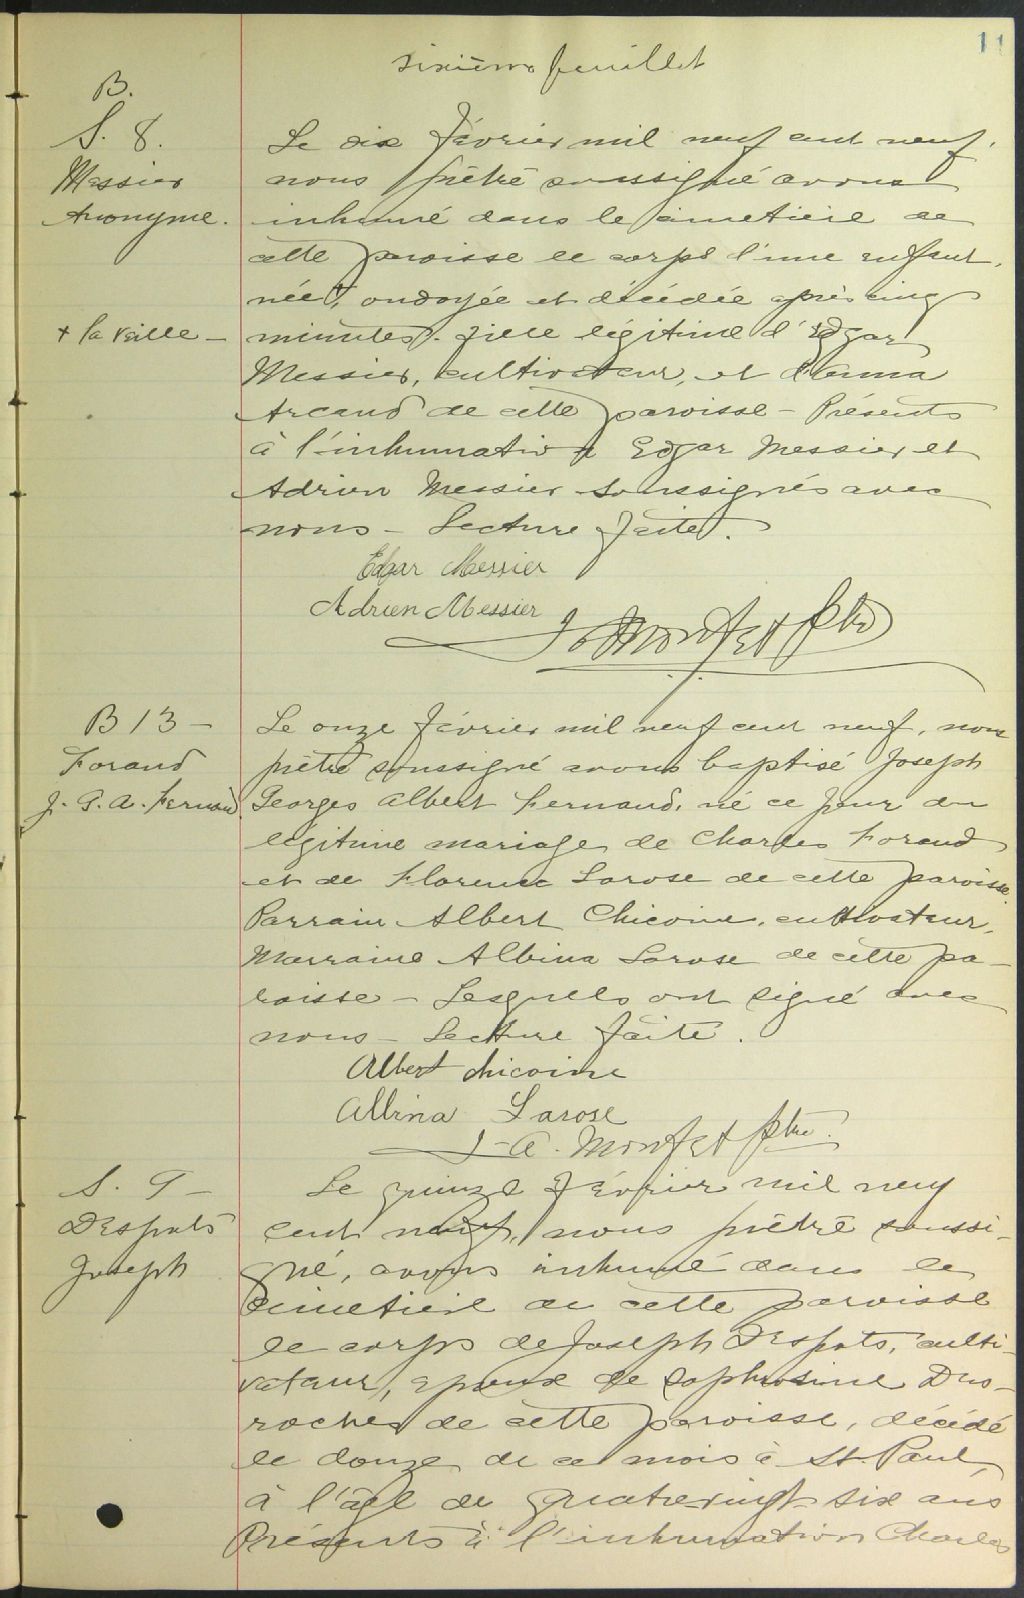 11
sixième feuillet
B.
S. 8.
Messier
Anonyme.
+ la veille -
Le dix février mil neuf cent neuf,
nous prêtre soussigné avons
inhumé dans le cimetière de
cette paroisse le corps d'une enfant,
née +, ondoyée et décédée après cinq
minutes. fille légitime d'Edgar
Messier, cultivateur, et d'Anna
Arcand de cette paroisse - Présents
à l'inhumation Edgar Messier et
Adrien Messier soussignés avec
nous - Lecture faite.
Edgar Messier
Adrien Messier
J A Monfet ptre
B 13 -
Forand
J. G. A. Fernand
Le onze février mil neuf cent neuf, nous
prêtre soussigné avons baptisé Joseph
Georges Albert Fernand, né ce jour du
légitime mariage de Charles Forand
et de Florence Larose de cette paroisse.
Parrain Albert Chicoine, cultivateur,
Marraine Albina Larose de cette pa-
roisse - Lesquels ont signé avec
nous - Lecture faite.
Albert chicoine
Albina Larose
J-A. Monfet ptre.
S. 9 -
Desprts
Joseph
Le quinze février mil neuf
cent neuf, nous prêtre soussi-
gné, avons inhumé dans le
cimetière de cette paroisse
le corps de Joseph Desprts, culti-
vateur, époux de Sophrosine Des-
roches de cette paroisse, décédé
le douze de ce mois à St-Paul,
à l'âge de quatrevingt-six ans
Présents à l'inhumation Charles